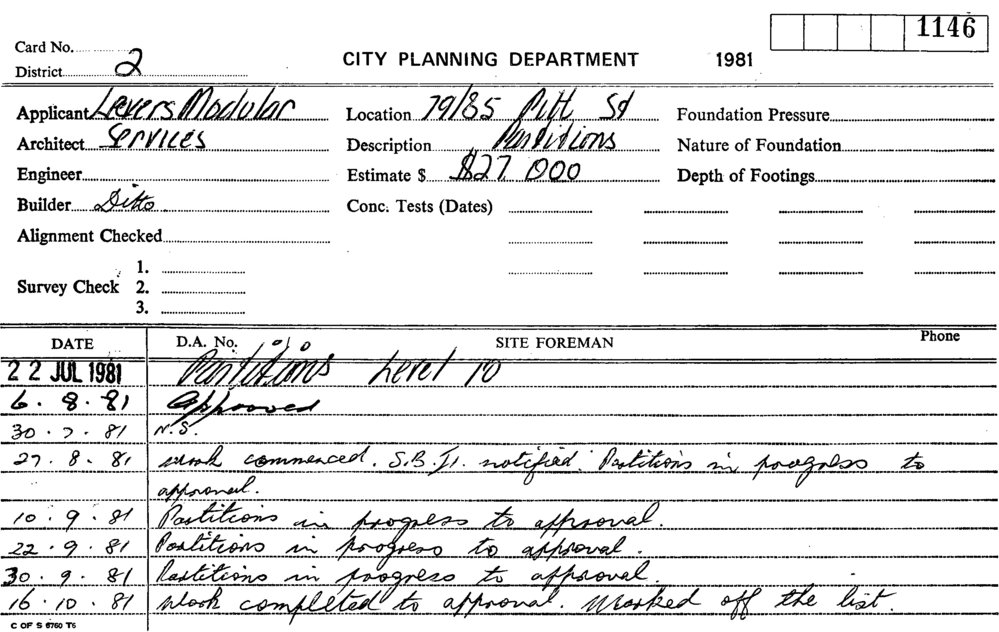 1146
Card No.
District 2
CITY PLANNING DEPARTMENT 1981
Applicant Levers Modular Location 79/85 Pitt St Foundation Pressure
Architect Services Description Partitions Nature of Foundation
Engineer Estimate $ $27 000 Depth of Footings
Builder Ditto Conc. Tests (Dates)
Alignment Checked
1.
Survey Check 2.
3.
DATE D.A. No. SITE FOREMAN Phone
22 JUL 1981 Partitions Level 10
6 . 8 . 81 Approved
30 . 7 . 81 N.S.
27 . 8 . 81 work commenced. S.B.I. notified. Partitions in progress to
approval.
10 . 9 . 81 Partitions in progress to approval.
22 . 9 . 81 Partitions in progress to approval.
30 . 9 . 81 Partitions in progress to approval.
16 . 10 . 81 Work completed to approval. Marked off the list.
C OF S 6760 T6